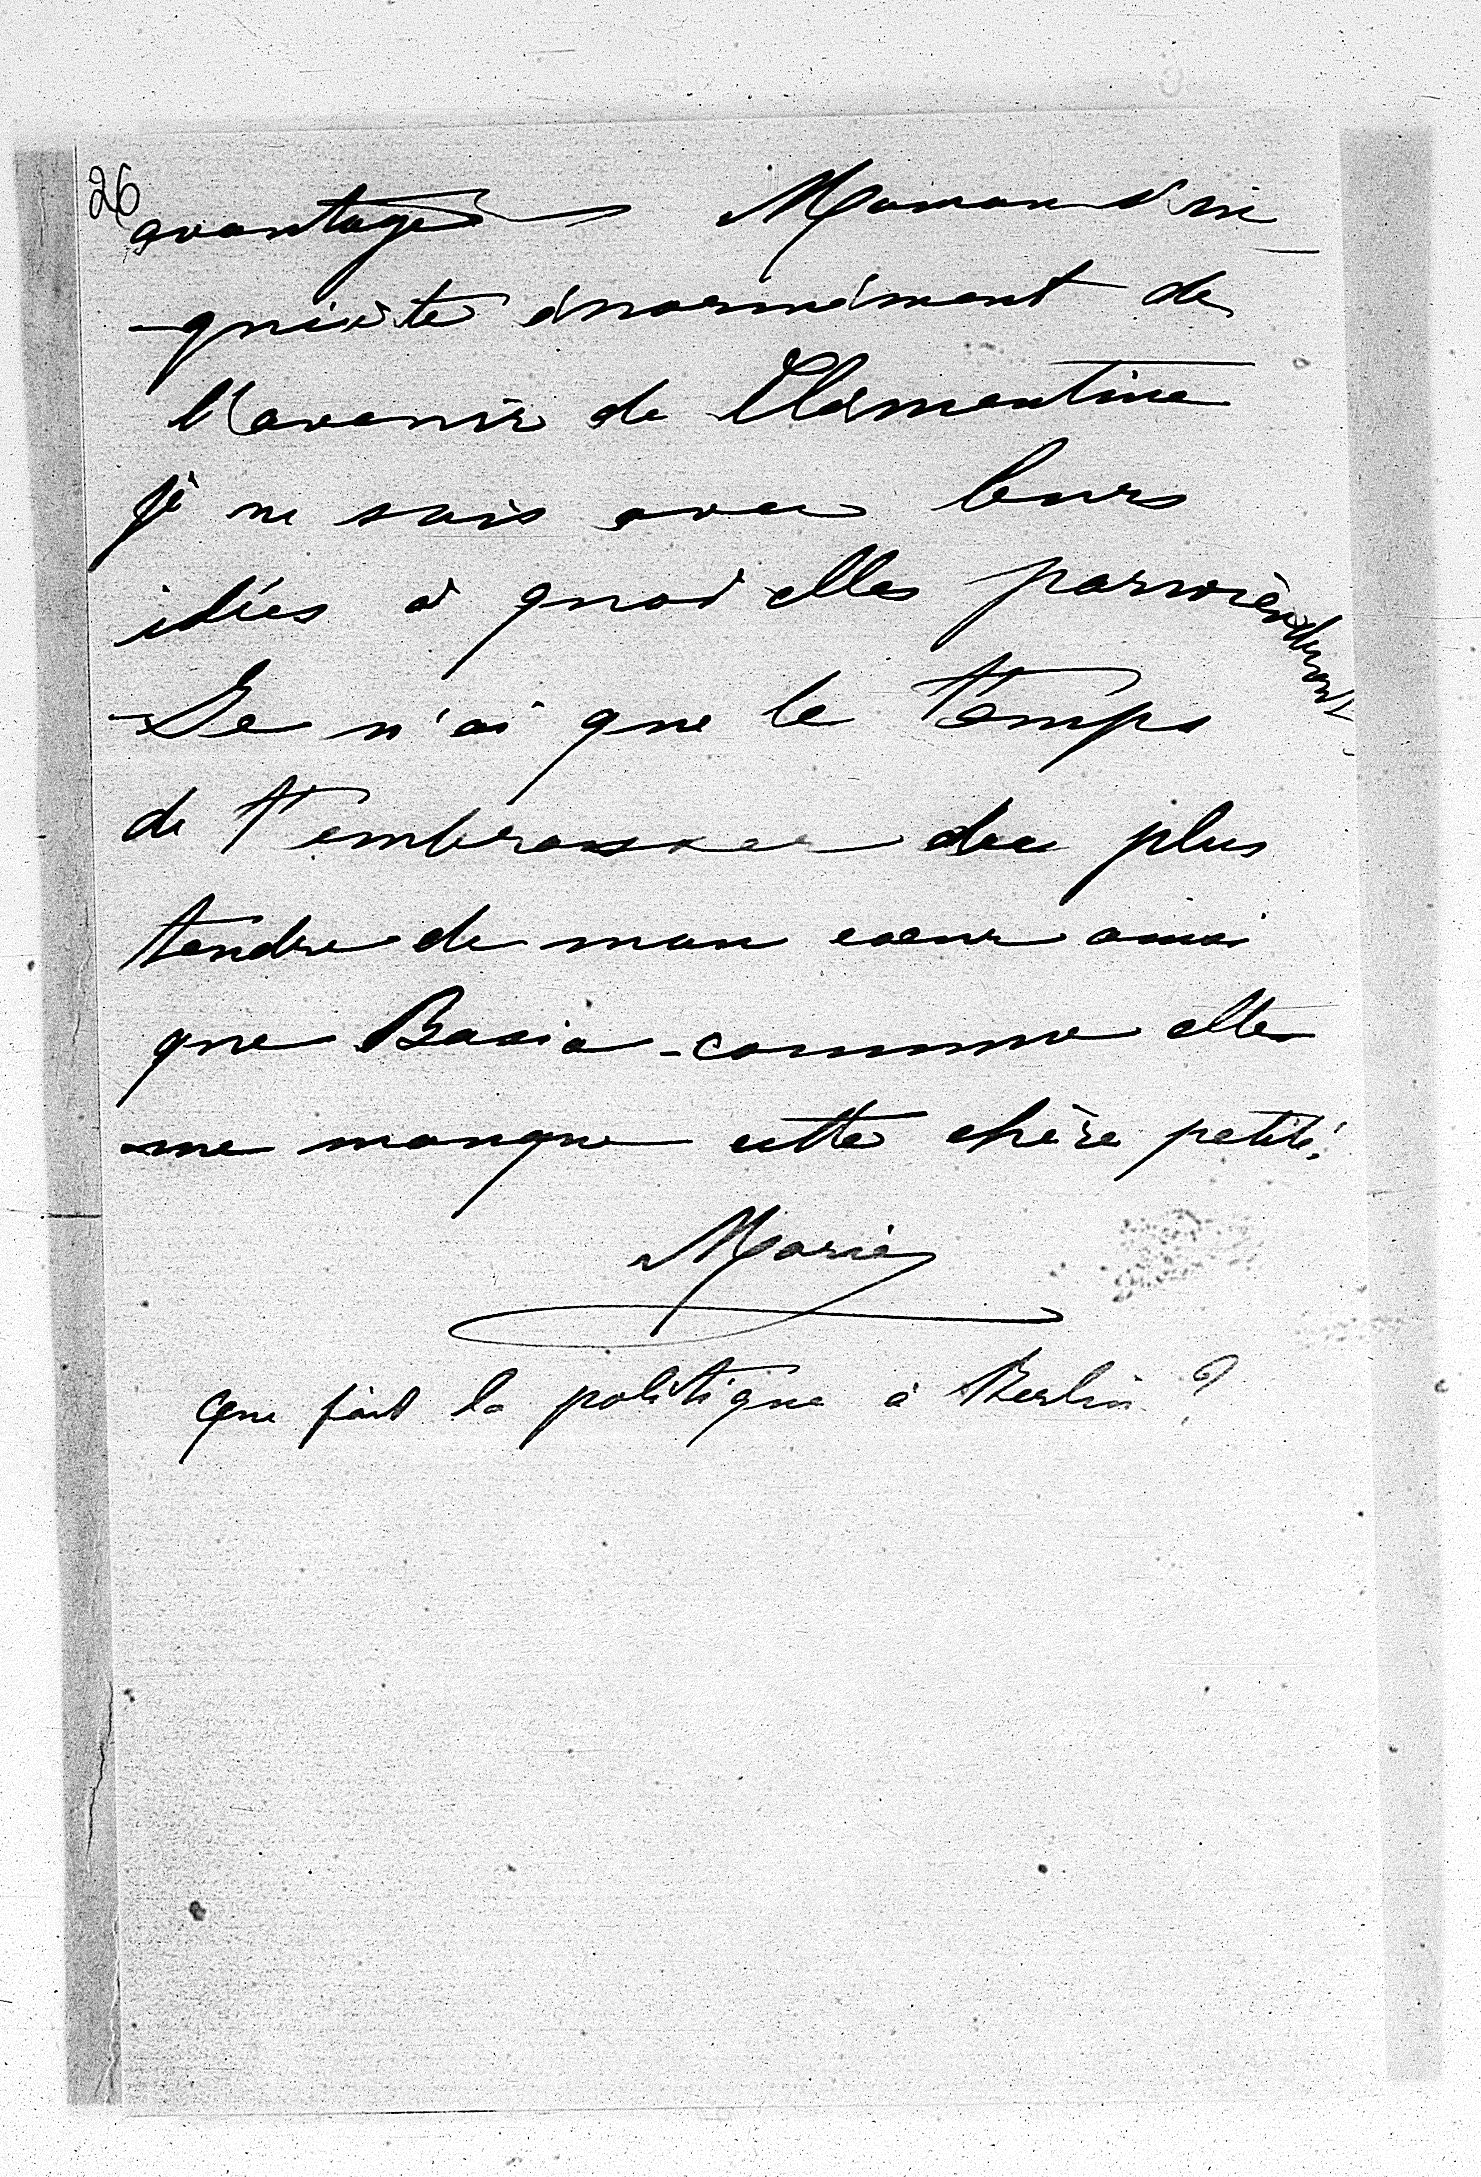 26
avantages Maman s'in
-quiète énormément de
l'avenir de Clémentine
je ne sais avec leurs
idées à quoi elles parviendront
-Je n'ai que le temps
de t'embrasser du plus
tendre de mon coeur ainsi
que Basia - comme elle
me manque cette chère petite!
Marie
Que fait la politique à Berlin?